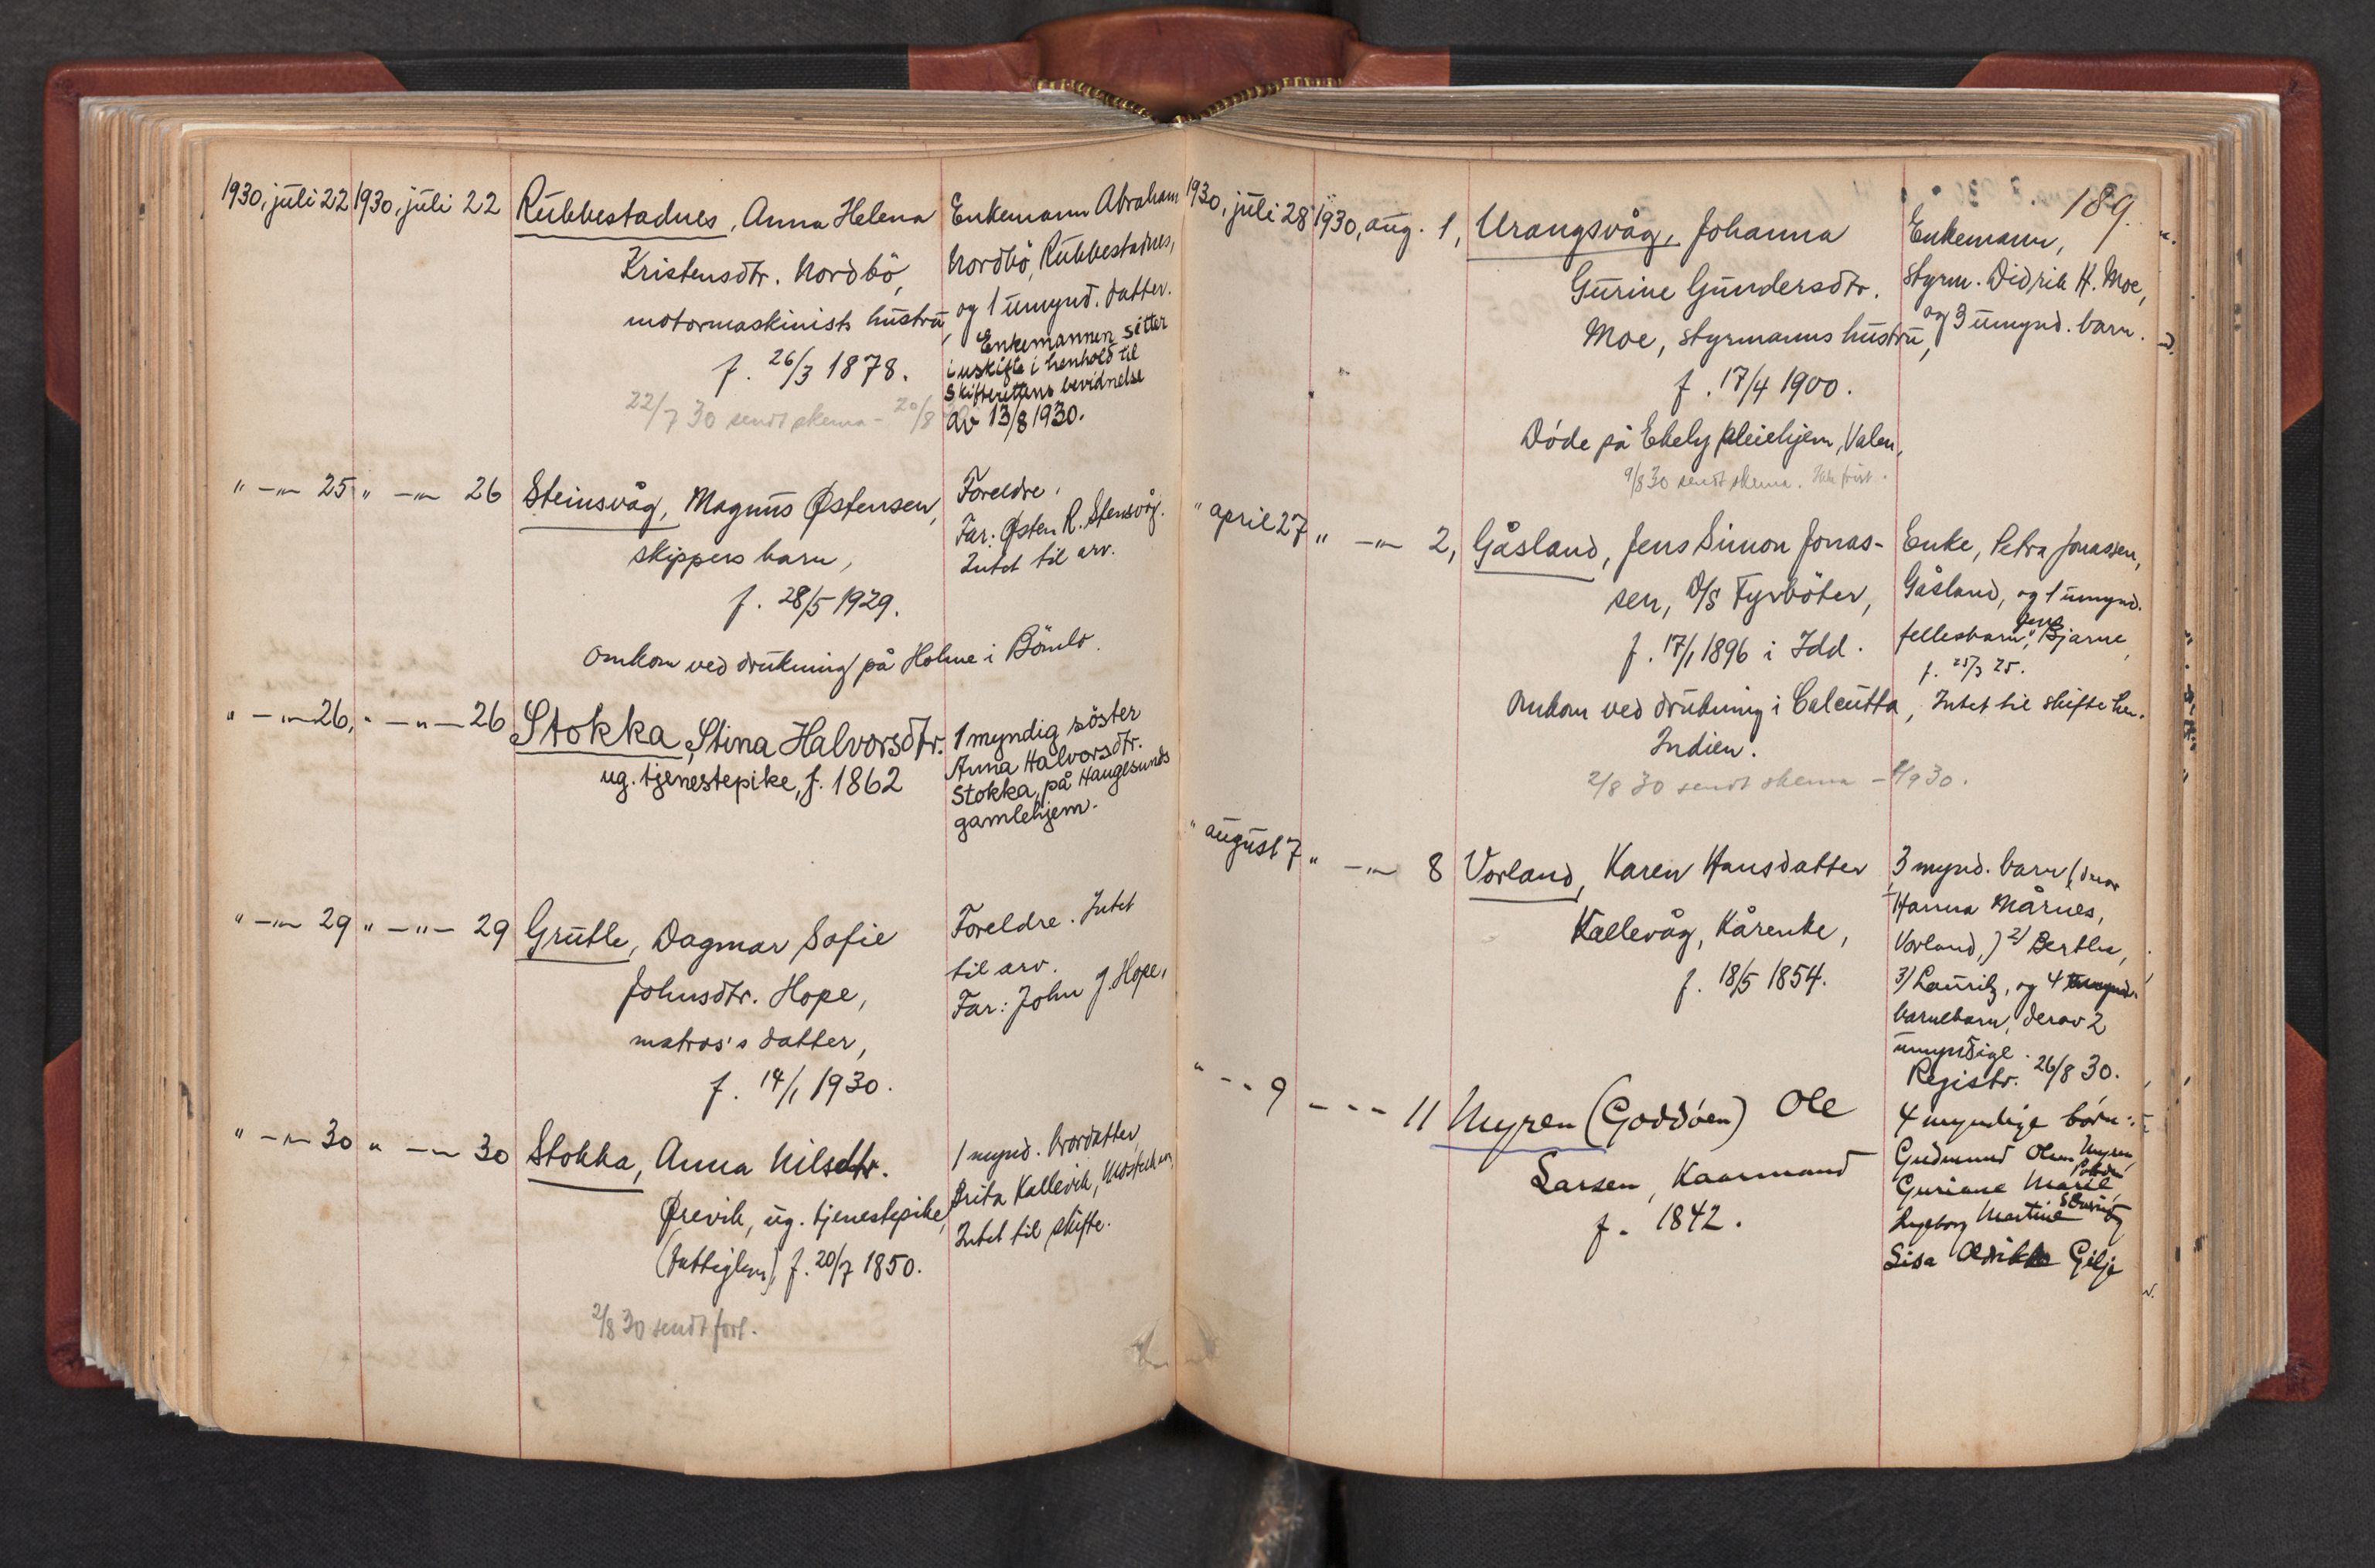 1930, juli 22 1930, juli 22 Rubbestadnes, Anna Helena
Kristensdtr. Nordbö,
motormaskinists hustru,
f. 26/3 1878.
22/7 30 sendt skema - 20/8
Enkemann Abraham
Nordbö, Rubbestadnes,
og 1 umynd. datter.
Enkemannen sitter
i uskifte i henhold til
Skifterettens bevidnelse
av 13/8 1930.
" —"— 25 " —"— 26 Steinsvåg, Magnus Østensen,
skippers barn,
f. 28/5 1929.
Omkom ved drukning på Holme i Bömlo.
Foreldre,
Far: Østen R. Stensvåg.
Intet til arv.
" —"— 26, " —"— 26 Stokka, Stina Halvorsdtr.
ug. tjenestepike, f. 1862
1 myndig söster
Anna Halvorsdtr.
Stokka, på Haugesunds
gamlehjem.
" —"— 29 " —"— 29 Grutle, Dagmar Sofie
Johnsdtr. Hope,
matros's datter,
f. 14/1 1930.
Foreldre. Intet
til arv.
Far: John J. Hope,
" —"— 30 " —"— 30 Stokka, Anna Nilsdtr.
Ørevik, ug. tjenestepike,
(fattiglem), f. 20/7 1850.
2/8 30 sendt forf.
1 mynd. brordatter
Brita Kallevik,
Intet til skifte.
189.
1930, juli 28 1930, aug. 1, Urangsvåg, Johanna
Gurine Gundersdtr.
Moe, styrmanns hustru,
f. 17/4 1900.
Döde på Ekely pleiehjem, Valen,
9/8 30 sendt skema.
Enkemann,
styrm. Didrik H. Moe,
og 3 umynd. barn.
" april 27 " —"— 2, Gåsland, Jens Simon Jonas-
sen, D/S Fyrböter,
f. 17/1 1896 i Idd.
Omkom ved drukning i Calcutta,
Indien.
2/8 30 sendt skema - 2/9 30.
Enke, Petra Jonassen,
Gåsland, og 1 umynd.
fellesbarn, Jens Bjarne,
f. 25/3 25.
Intet til skifte her.
" august 7 " —"— 8 Vorland, Karen Hansdatter
Kallevåg, Kårenke,
f. 18/5 1854.
3 mynd. barn
Hanna Mårnes,
Vorland,) 2/ Berthe,
3/ Lauritz, og 4
barnebarn, derav 2
umyndige.
Registr. 26/8 30.
" - - 9 - - - 11 Myren (Goddöen) Ole
Larsen, Kaarmand
f. 1842.
4 myndige börn:
Gudmund Olsen Myren
Guriane Marie
Ingeborg Martine
Lisa Gilje